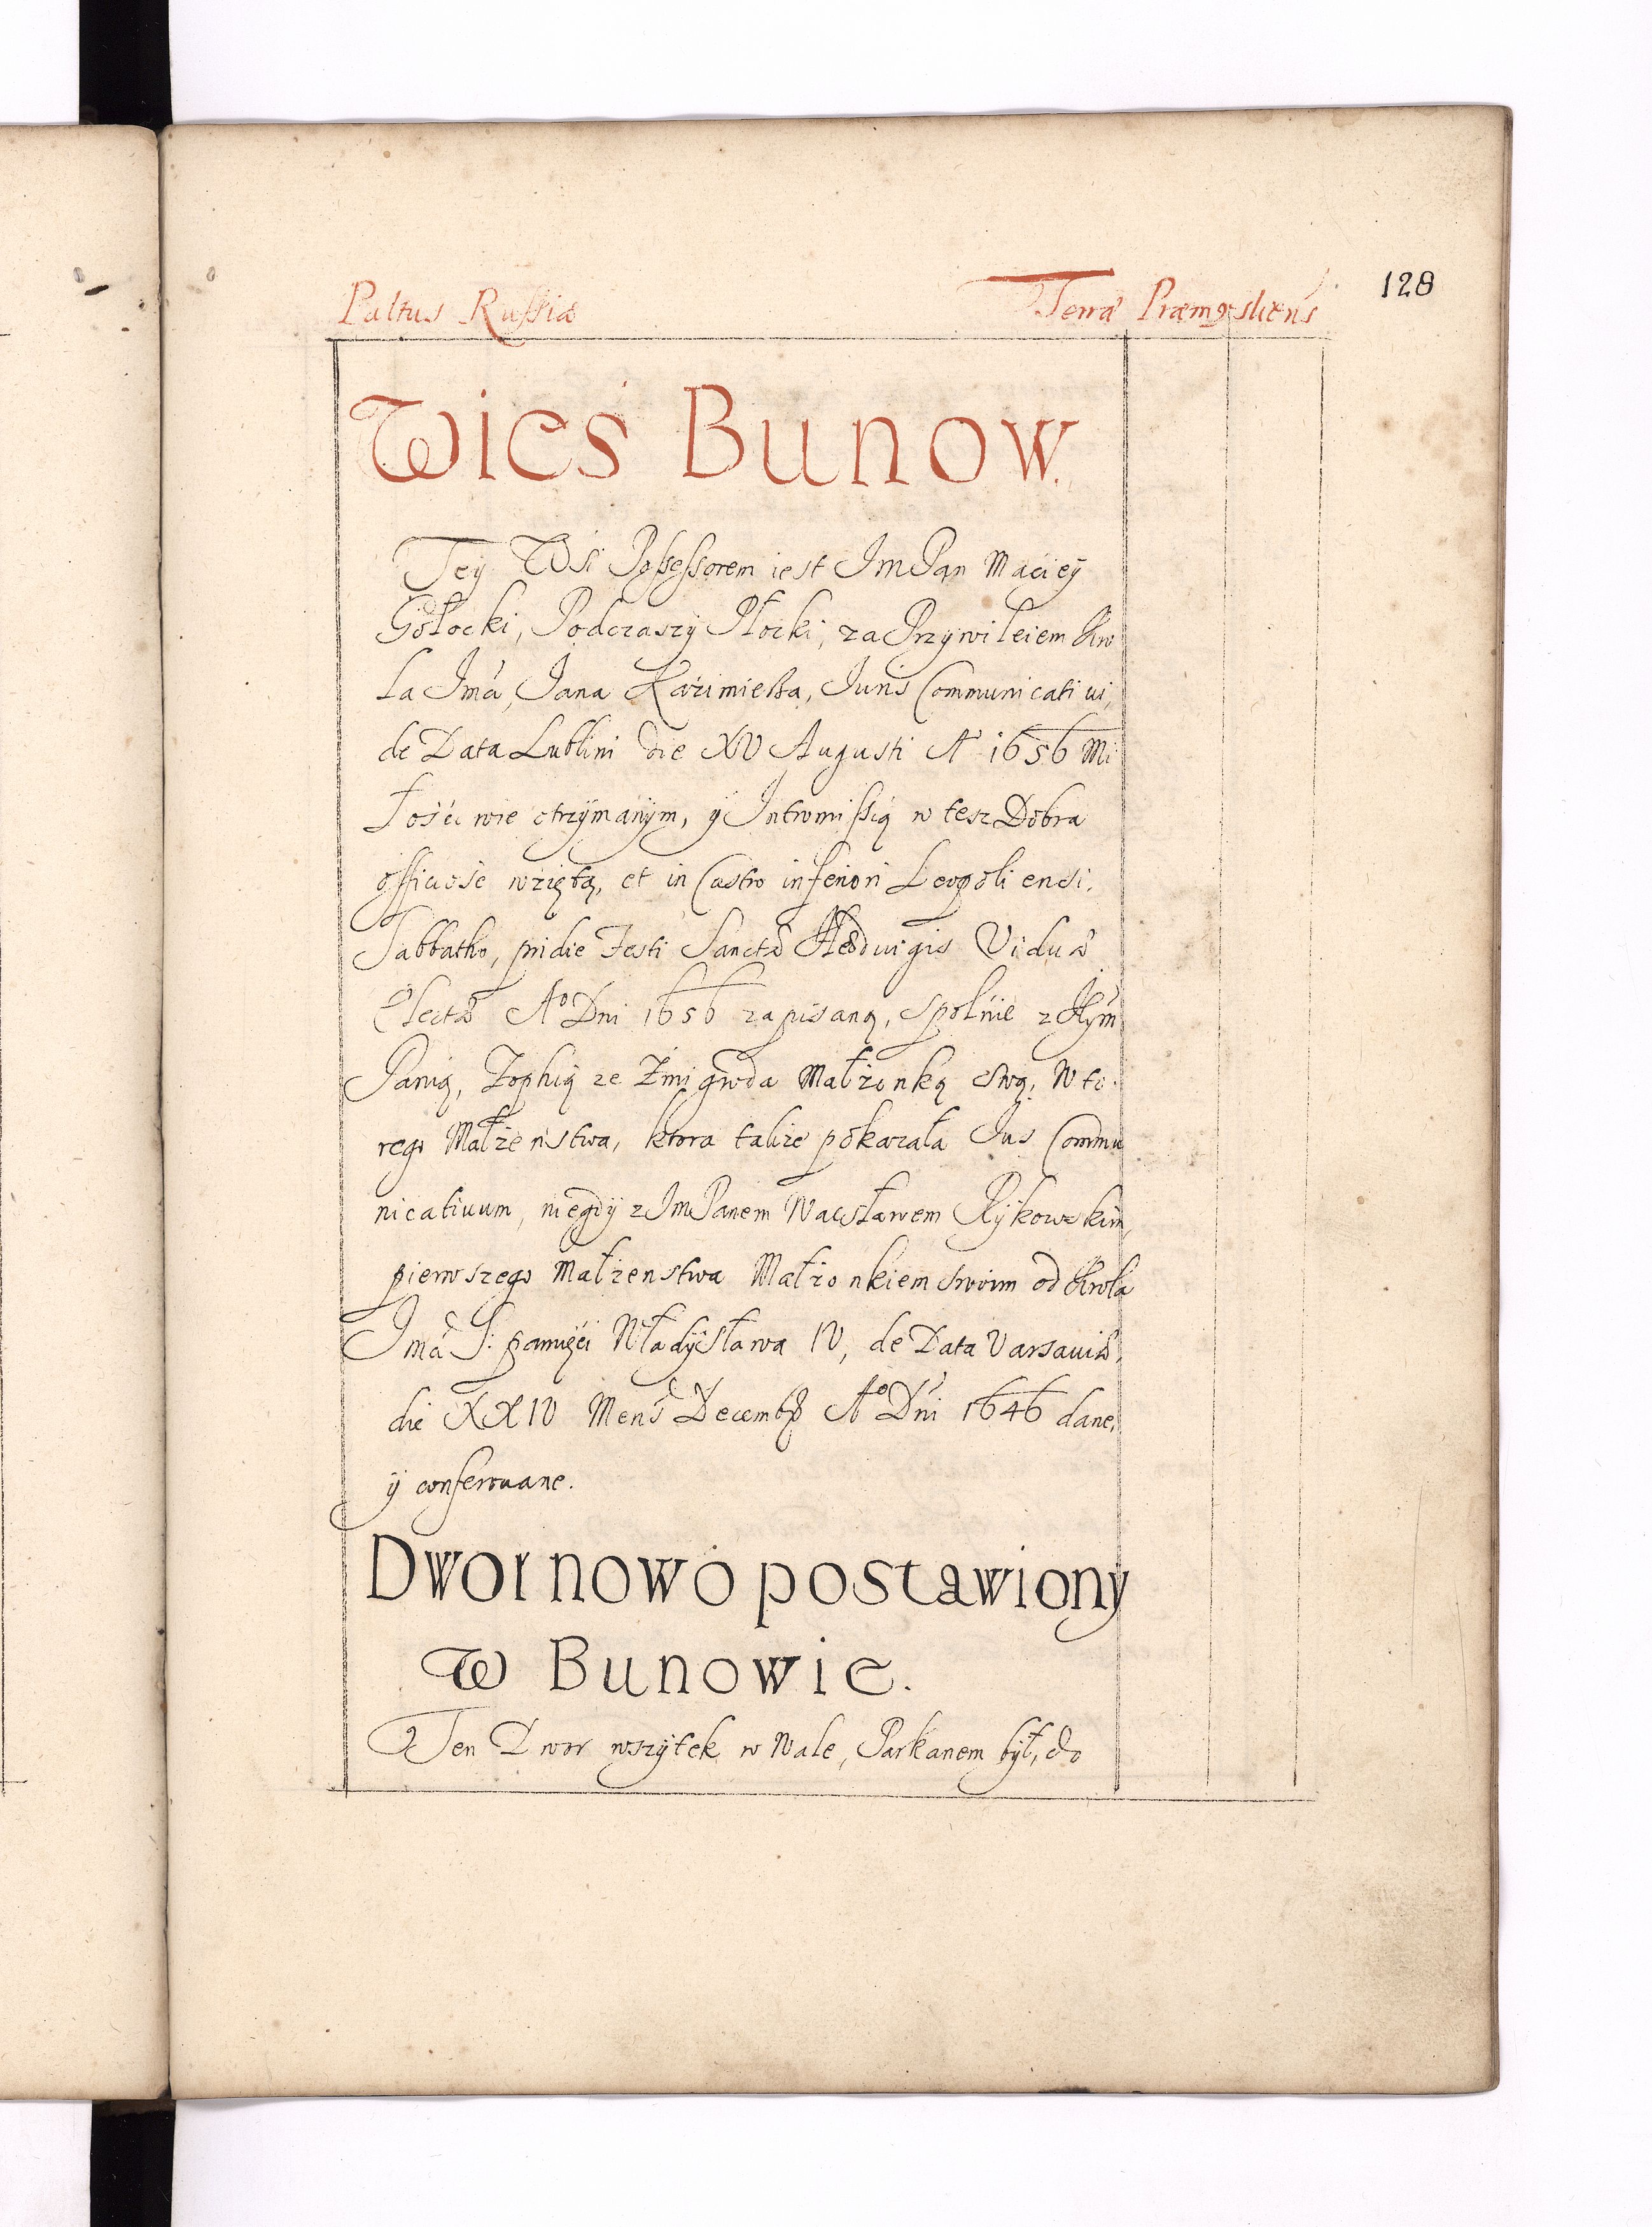 Paltus Russiæ
Terræ Præmysliens
128
Wieś Bunow.
Tey Wsi Possessorem iest Im Pan Maciey
Gołocki, Podczaszy Płocki, za Przywileiem Kro
la Imći, Jana Kazimierza, Juris Communicativi,
de Data Lublini die XV Augusti A 1656 Mi
łośći wie otrzymanÿm, ÿ Intromissią w tesz Dobra
officiose wziętą, et in Castro inferiori Leopoliensi.
Sabbatho, pridie Festi Sanctæ Hedvigis Viduæ
Electæ Aº Dni 1656 zapisaną, spolnie z
Panią, Zophią ze Żmigroda Małżonką swą, wto
rego Małżeństwa, ktora także pokazała Jus Commu
nicativum, niegdÿ z Im Panem Wacsławem Rÿkowskim
pierwszego Małżenstwa Małżonkiem swoim od Krola
Imći S: pamięci Władÿsława IV, de Data Varsaviæ,
die XXIV Mens Decemb Aº Dni 1646 dane,
ÿ conferowane.
Dwor nowo postawiony
w Bunowie.
Ten Dwor wszÿtek w Wale, Parkanem bÿł, do